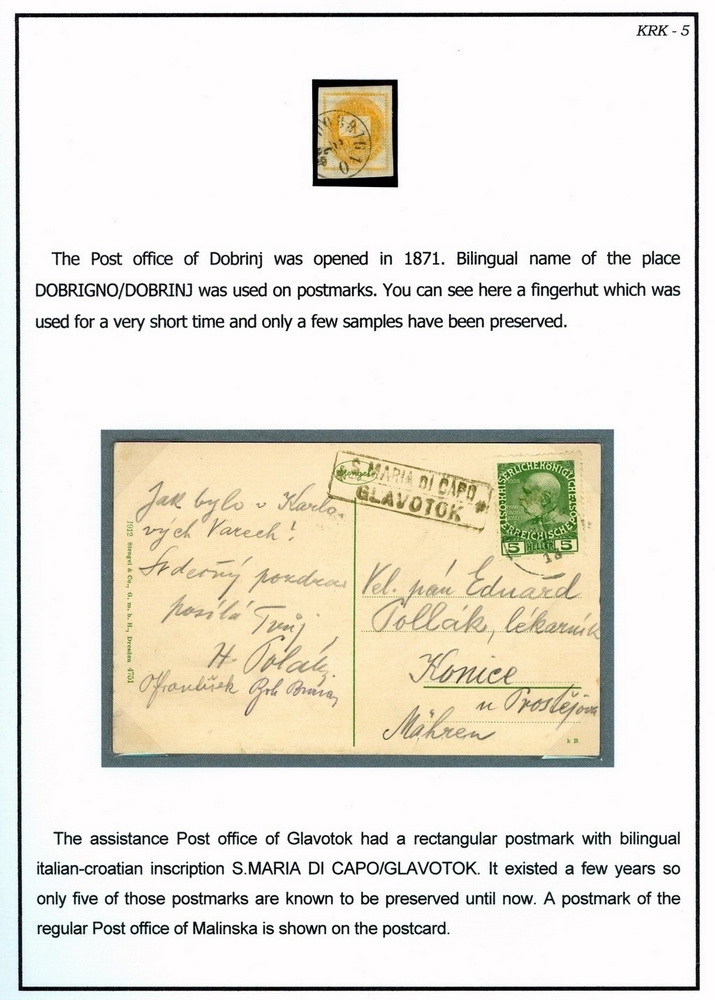 KRK - 5
The Post office of Dobrinj was opened in 1871. Bilingual name of the place
DOBRIGNO/DOBRINJ was used on postmarks. You can see here a fingerhut which was
used for a very short time and only a few samples have been preserved.
S. MARIA DI CAPO
GLAVOTOK
Stengel
Jak bylo v Karlo-
vých Varech!
Srdečný pozdrav
posílá Tvůj
H. Polák
František
1912 Stengel & Co., G. m. b. H., Dresden 4751
5 5
18
Vel. pán Eduard
Pollák, lékarník
Konice
u Prostějova
Mähren
k B
The assistance Post office of Glavotok had a rectangular postmark with bilingual
italian-croatian inscription S.MARIA DI CAPO/GLAVOTOK. It existed a few years so
only five of those postmarks are known to be preserved until now. A postmark of the
regular Post office of Malinska is shown on the postcard.